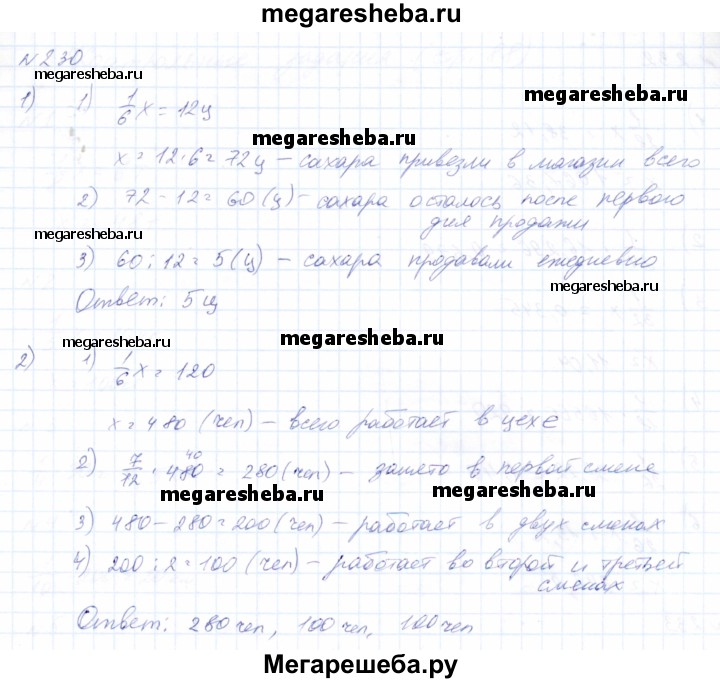 megaresheba.ru
N 230
megaresheba.ru
1) 1) 1/6 x = 12ц
megaresheba.ru
megaresheba.ru
x = 12·6 = 72ц – сахара привезли в магазин всего
2) 72 - 12 = 60 (ц) – сахара осталось после первого
дня продажи
megaresheba.ru
3) 60 : 12 = 5 (ц) – сахара продавали ежедневно
megaresheba.ru
Ответ: 5 ц
megaresheba.ru
megaresheba.ru
2) 1) 1/6 x = 120
x = 480 (чел) – всего работает в цехе
2) 7/12 · 480 40 = 280 (чел) – занято в первой смене
megaresheba.ru
megaresheba.ru
3) 480 – 280 = 200 (чел) – работает в двух сменах
4) 200 : 2 = 100 (чел) – работает во второй и третьей
сменах
Ответ: 280 чел, 100 чел, 100 чел
Мегарешеба.ру